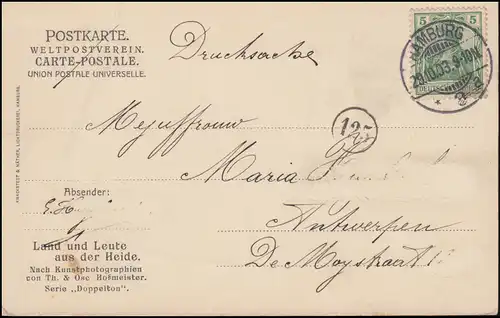 POSTKARTE.
WELTPOSTVEREIN.
CARTE-POSTALE.
UNION POSTALE UNIVERSELLE.
Drucksache
5 5
HAMBURG
29.10.03. 9-10N.
* 8
Mejuffrouw
125
Maria
Absender:
Antwerpen
Land und Leute
aus der Heide.
Nach Kunstphotographien
von Th. & Osc. Hofmeister.
Serie „Doppelton".
De Moystraat
KNACKSTEDT & NÄTHER, LICHTDRUCKEREI, HAMBURG.